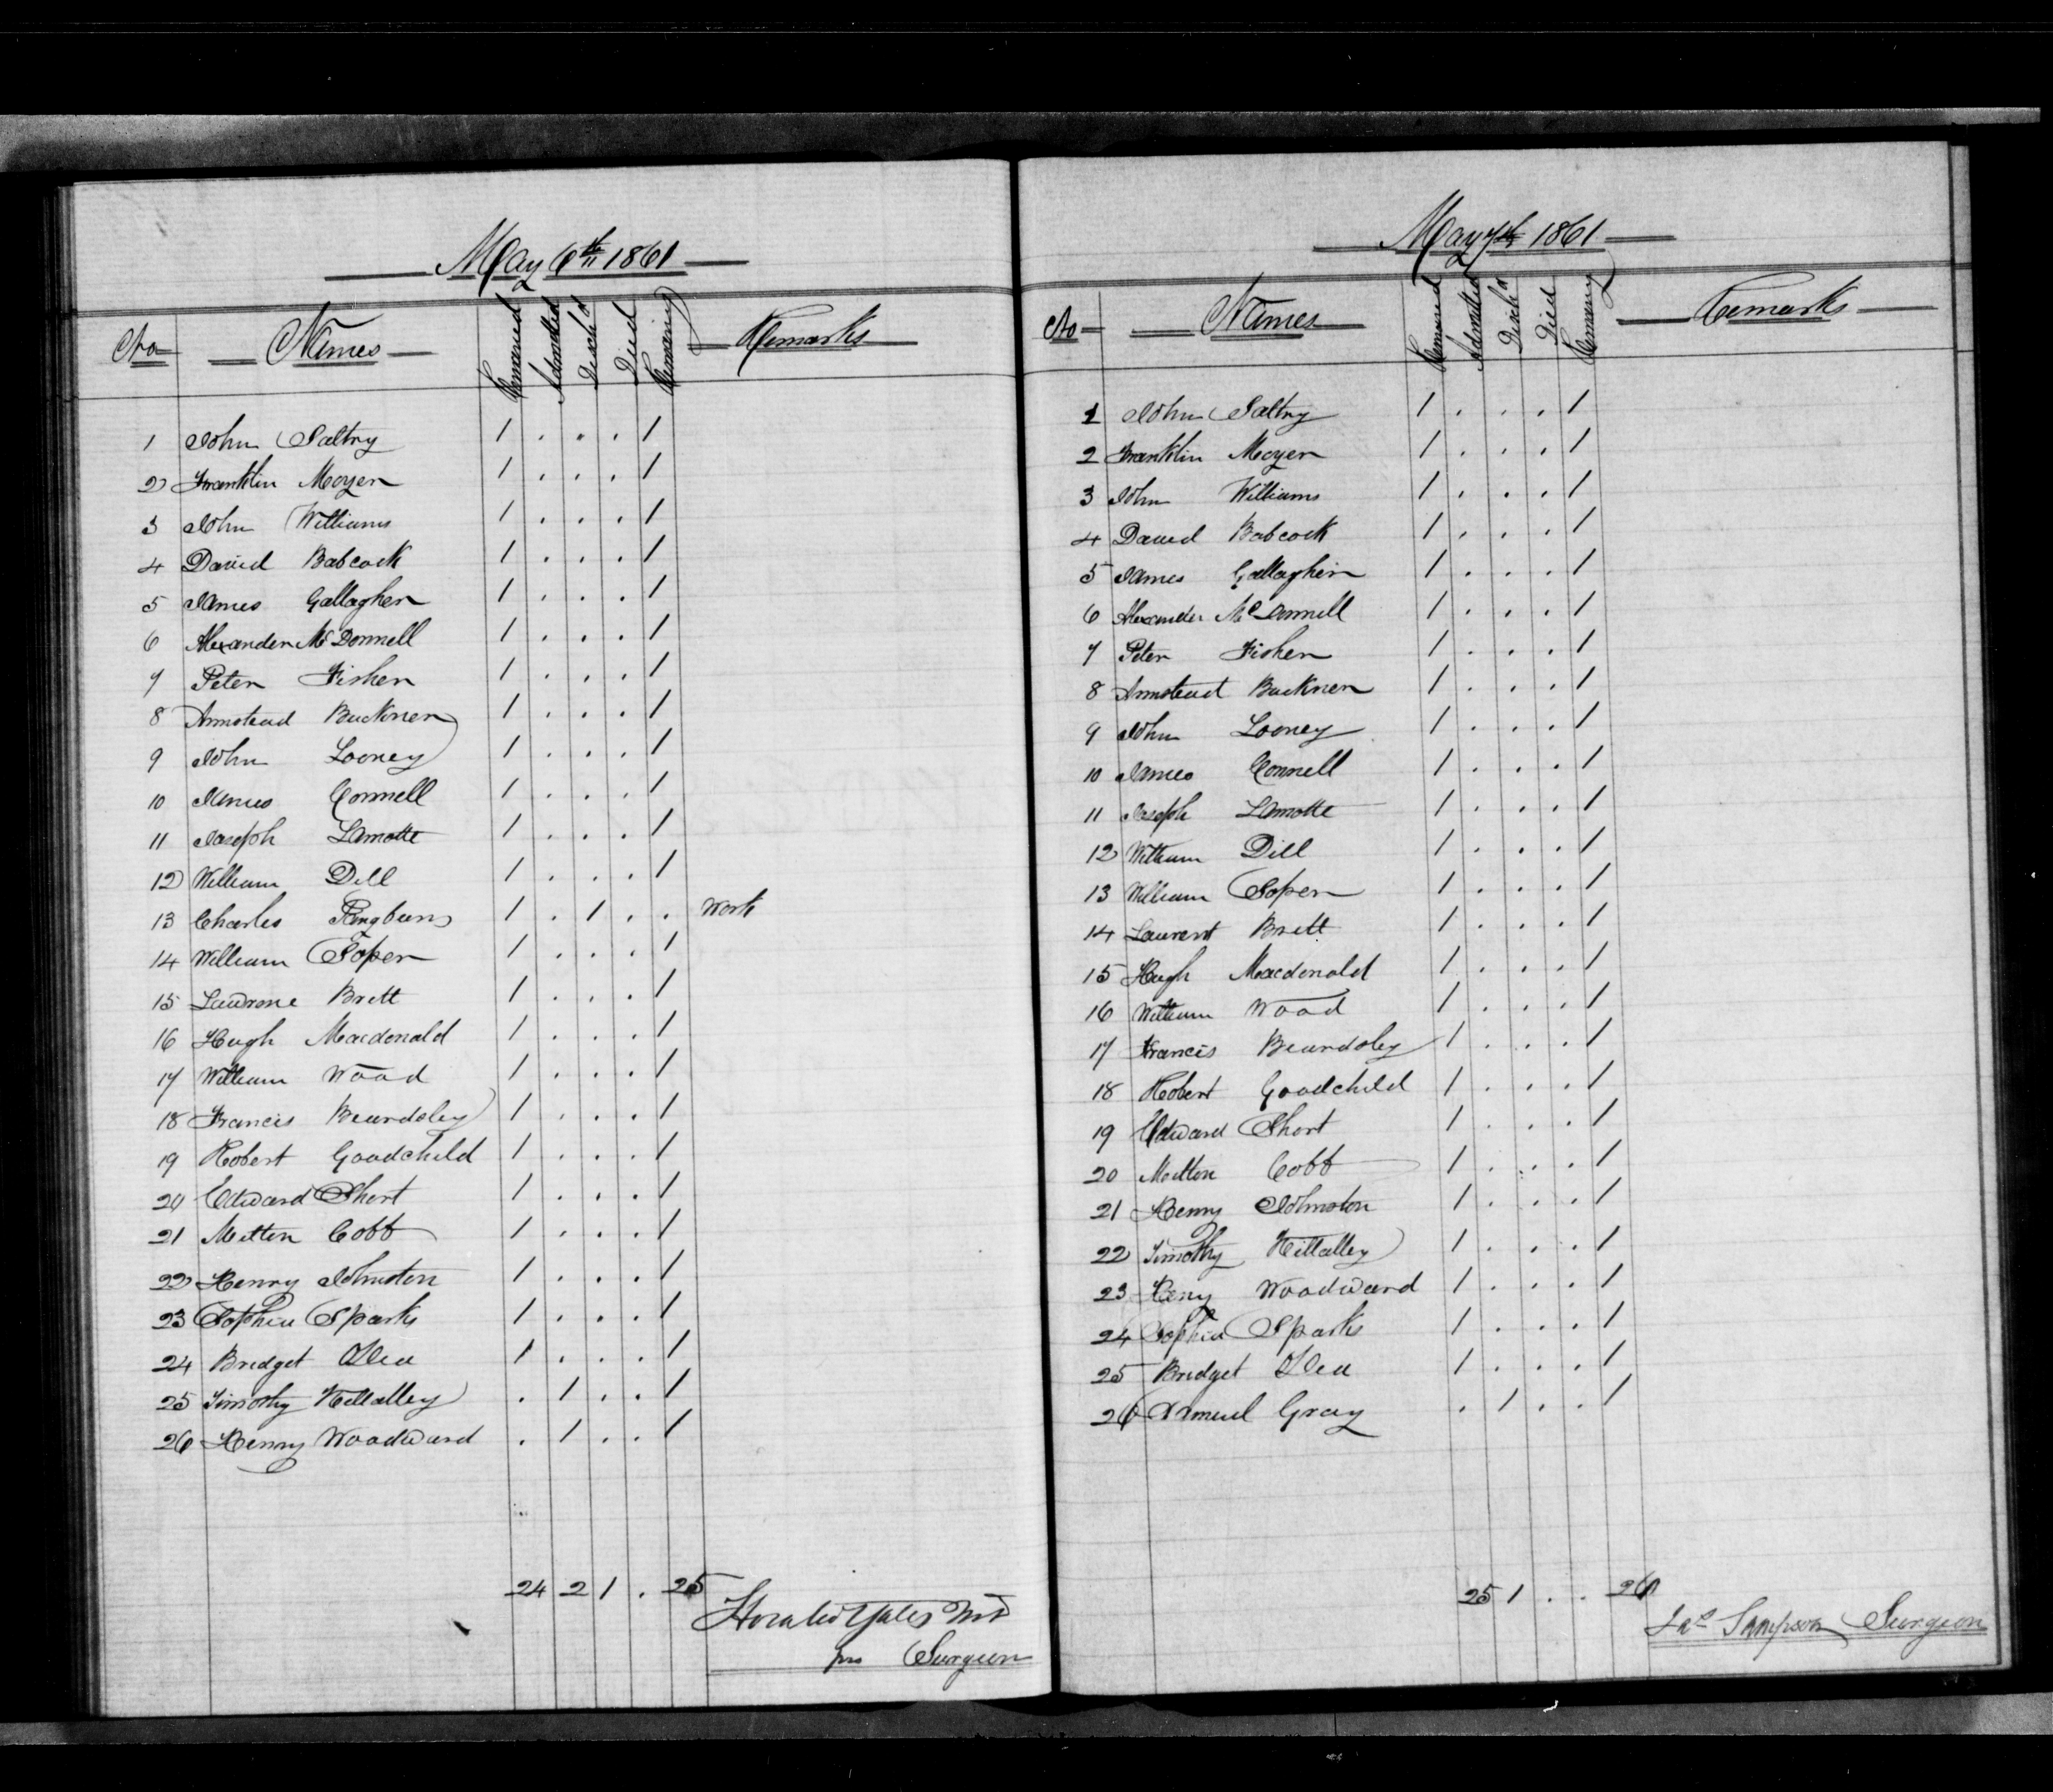 May 6th 1861
No Names Remained Admitted Disch'd Died Remaining Remarks
1 John Saltry 1 . . . 1
2 Franklin Moyer 1 . . . 1
3 John Williams 1 . . . 1
4 David Babcock 1 . . . 1
5 James Gallagher 1 . . . 1
6 Alexander McDonnell 1 . . . 1
7 Peter Fisher 1 . . . 1
8 Armstead Buckner 1 . . . 1
9 John Looney 1 . . . 1
10 James Connell 1 . . . 1
11 Joseph Lamotte 1 . . . 1
12 William Dill 1 . . . 1
13 Charles 1 . 1 . . Work
14 William Soper 1 . . . 1
15 Brett 1 . . . 1
16 Hugh Macdonald 1 . . . 1
17 William Wood 1 . . . 1
18 Francis Beardsley 1 . . . 1
19 Robert Goodchild 1 . . . 1
20 Edward Short 1 . . . 1
21 Milton Cobb 1 . . . 1
22 Henry Johnston 1 . . . 1
23 Sophia Sparks 1 . . . 1
24 Bridget 1 . . . 1
25 Timothy Killalley . 1 . . 1
26 Henry Woodward . 1 . . 1
24 2 1 . 25
Horatio Yates MD
pro Surgeon
May 7th 1861
No Names Remained Admitted Disch'd Died Remaining Remarks
1 John Saltry 1 . . . 1
2 Franklin Moyer 1 . . . 1
3 John Williams 1 . . . 1
4 David Babcock 1 . . . 1
5 James Gallagher 1 . . . 1
6 Alexander McDonnell 1 . . . 1
7 Peter Fisher 1 . . . 1
8 Armstead Buckner 1 . . . 1
9 John Looney 1 . . . 1
10 James Connell 1 . . . 1
11 Joseph Lamotte 1 . . . 1
12 William Dill 1 . . . 1
13 William Soper 1 . . . 1
14 Laurent Brett 1 . . . 1
15 Hugh Macdonald 1 . . . 1
16 William Wood 1 . . . 1
17 Francis Beardsley 1 . . . 1
18 Robert Goodchild 1 . . . 1
19 Edward Short 1 . . . 1
20 Milton Cobb 1 . . . 1
21 Henry Johnston 1 . . . 1
22 Timothy Killalley 1 . . . 1
23 Heny Woodward 1 . . . 1
24 Sophia Sparks 1 . . . 1
25 Bridget 1 . . . 1
26 Samuel Gray . 1 . . 1
25 1 . . 26
Jas Sampson Surgeon